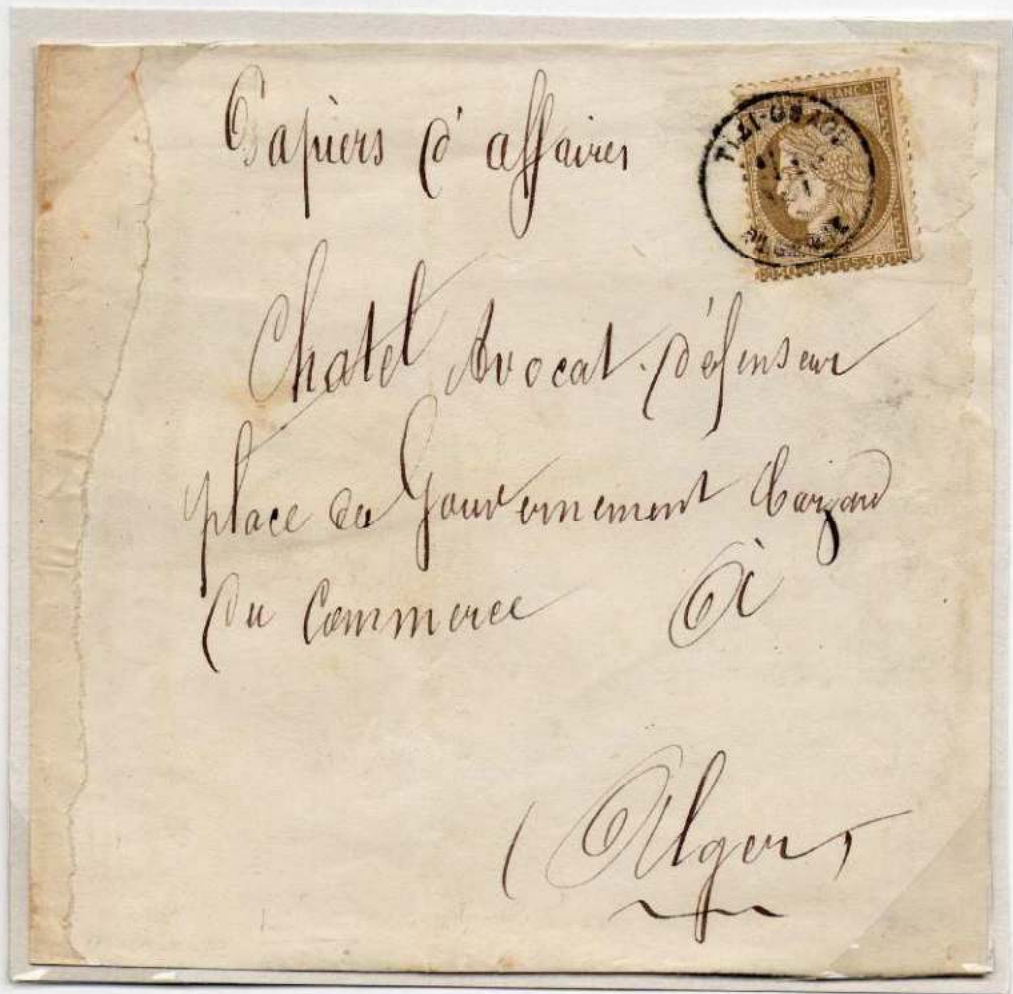 Papiers d'affaires
TIZI-OUZOU
FRANC
Chatel Avocat-défenseur
place du Gouvernement Bazard
du Commerce à
(Alger)